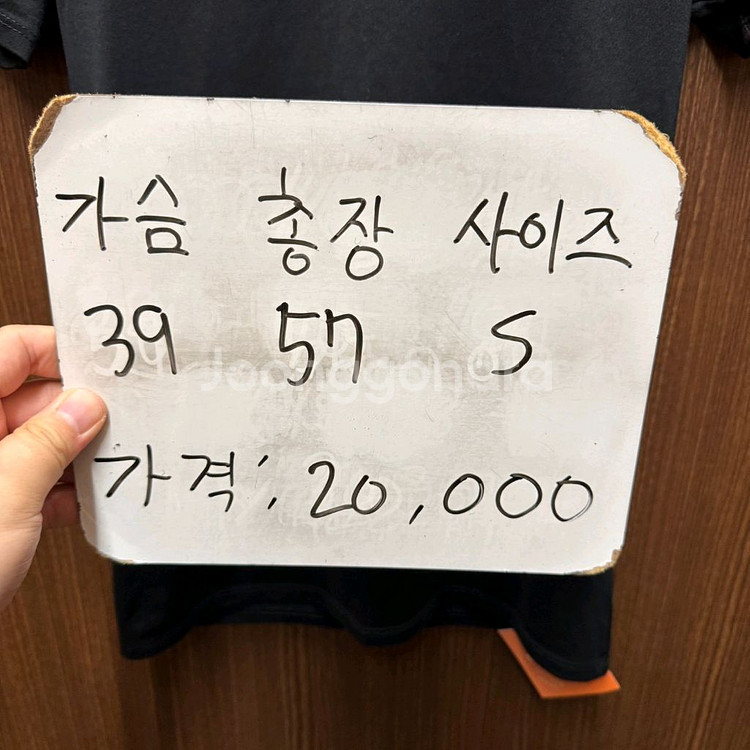 가슴 총장 사이즈
39 57 S
Joonggonara
가격: 20,000